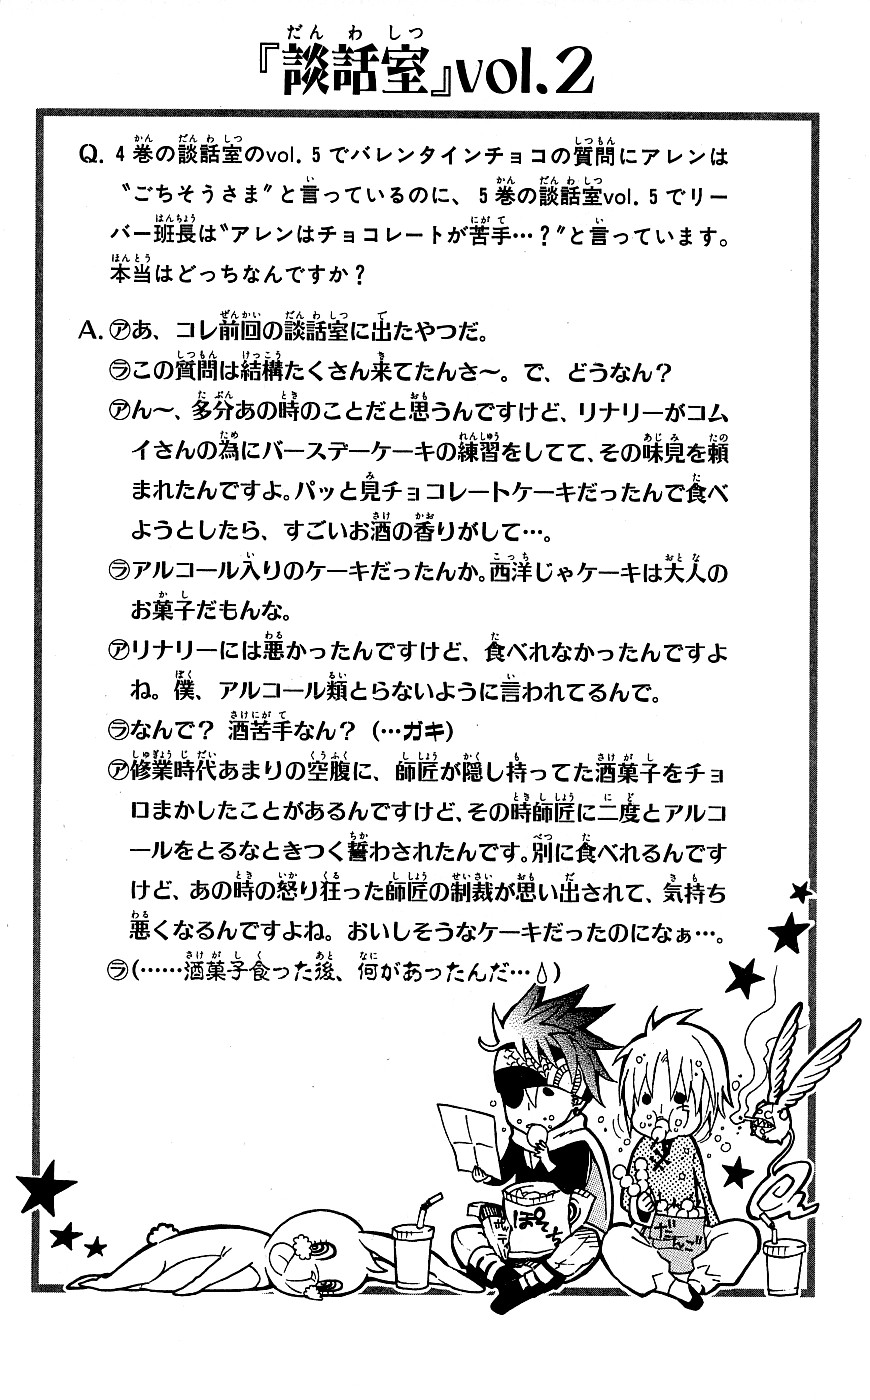 『談話室』vol.2
Q. 4巻の談話室のvol.5でバレンタインチョコの質問にアレンは
〝ごちそうさま〟と言っているのに、5巻の談話室vol.5でリー
バー班長は〝アレンはチョコレートが苦手…?〟と言っています。
本当はどっちなんですか?
A. ㋐あ、コレ前回の談話室に出たやつだ。
㋶この質問は結構たくさん来てたんさ〜。で、どうなん?
㋐ん〜、多分あの時のことだと思うんですけど、リナリーがコム
イさんの為にバースデーケーキの練習をしてて、その味見を頼
まれたんですよ。パッと見チョコレートケーキだったんで食べ
ようとしたら、すごいお酒の香りがして…。
㋶アルコール入りのケーキだったんか。西洋じゃケーキは大人の
お菓子だもんな。
㋐リナリーには悪かったんですけど、食べれなかったんですよ
ね。僕、アルコール類とらないように言われてるんで。
㋶なんで? 酒苦手なん? (…ガキ)
㋐修業時代あまりの空腹に、師匠が隠し持ってた酒菓子をチョ
ロまかしたことがあるんですけど、その時師匠に二度とアルコ
ールをとるなときつく誓わされたんです。別に食べれるんです
けど、あの時の怒り狂った師匠の制裁が思い出されて、気持ち
悪くなるんですよね。おいしそうなケーキだったのになぁ…。
㋶(……酒菓子食った後、何があったんだ…)
だんご